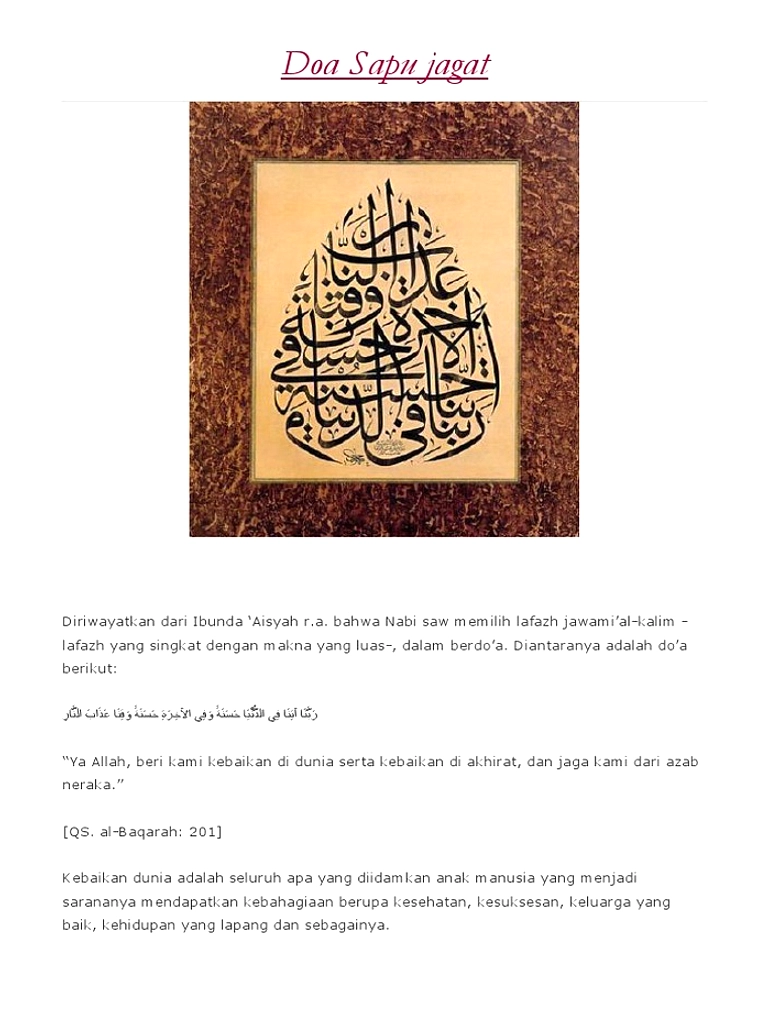 Doa Sapu jagat
ربنا آتنا في الدنيا حسنة وفي الآخرة حسنة وقنا عذاب النار
Diriwayatkan dari Ibunda ‘Aisyah r.a. bahwa Nabi saw memilih lafazh jawami’al-kalim -
lafazh yang singkat dengan makna yang luas-, dalam berdo’a. Diantaranya adalah do’a
berikut:
رَبَّنَا آتِنَا فِي الدُّنْيَا حَسَنَةً وَفِي الآخِرَةِ حَسَنَةً وَقِنَا عَذَابَ النَّارِ
“Ya Allah, beri kami kebaikan di dunia serta kebaikan di akhirat, dan jaga kami dari azab
neraka.”
[QS. al-Baqarah: 201]
Kebaikan dunia adalah seluruh apa yang diidamkan anak manusia yang menjadi
sarananya mendapatkan kebahagiaan berupa kesehatan, kesuksesan, keluarga yang
baik, kehidupan yang lapang dan sebagainya.